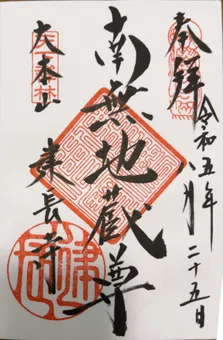 奉拝
令和五年八月二十五日
南無地蔵尊
大本山
建長寺